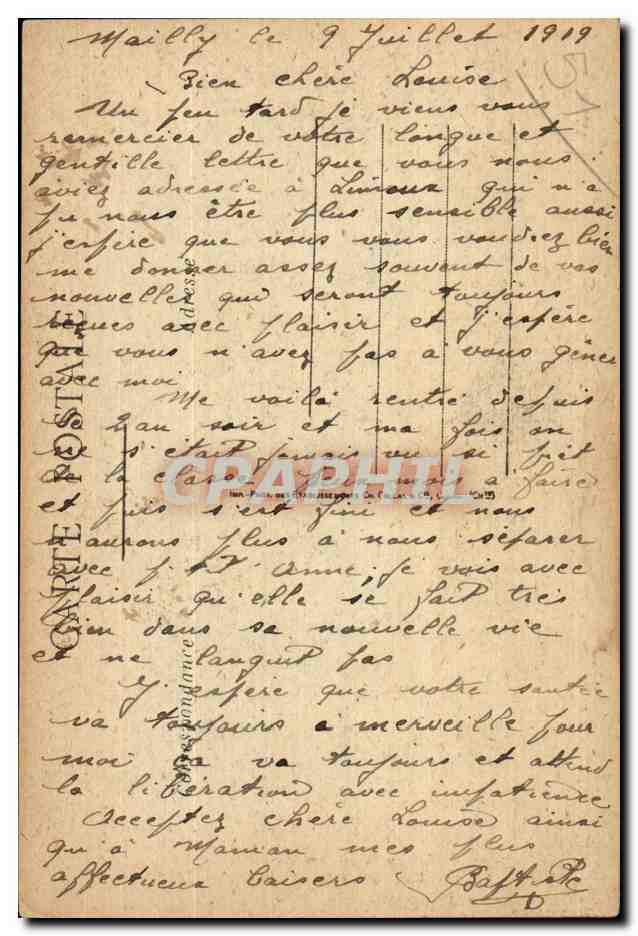 Mailly le 9 Juillet 1919
51
Bien chère Louise
Un peu tard je viens vous
remercier de votre longue et
gentille lettre que vous nous
aviez adressée à Limoux qui n'a
pu nous être plus sensible aussi
j'espère que vous vous voudrez bien
me donner assez souvent de vos
nouvelles qui seront toujours
reçues avec plaisir et j'espère
que vous n'avez pas à vous gêner
avec moi
Me voilà rentré depuis
le 2 au soir et ma fois on
ne s'était jamais vu si prêt
de la classe un mois à faire
et puis s'est fini et nous
n'aurons plus à nous séparer
avec Anne, je vois avec
plaisir qu'elle se fait très
bien dans sa nouvelle vie
et ne languit pas
J'espère que votre santée
va toujours à merveille pour
moi ça va toujours et attend
la libération avec impatience
Acceptez chère Louise ainsi
qu'à Maman mes plus
affectueux baisers Baptiste
CARTE POSTALE
Correspondance
Adresse
CPAPHIL